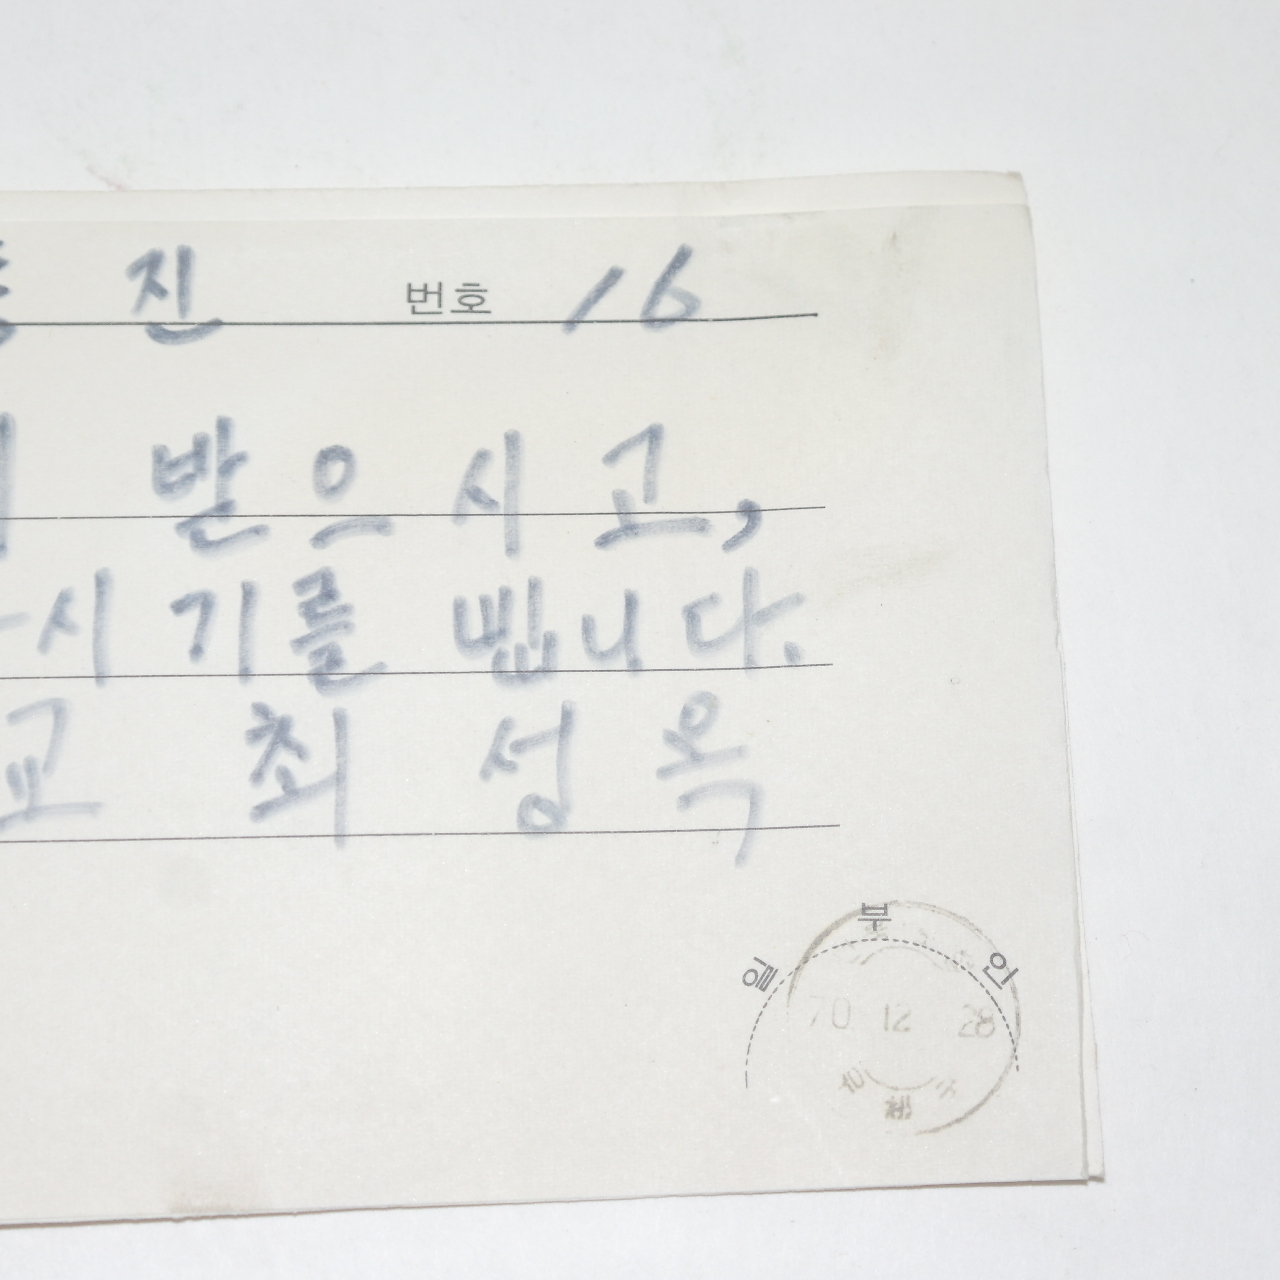 진 번호 16
받으시고,
시기를 빕니다.
교 최성옥
일부인
70 12 28